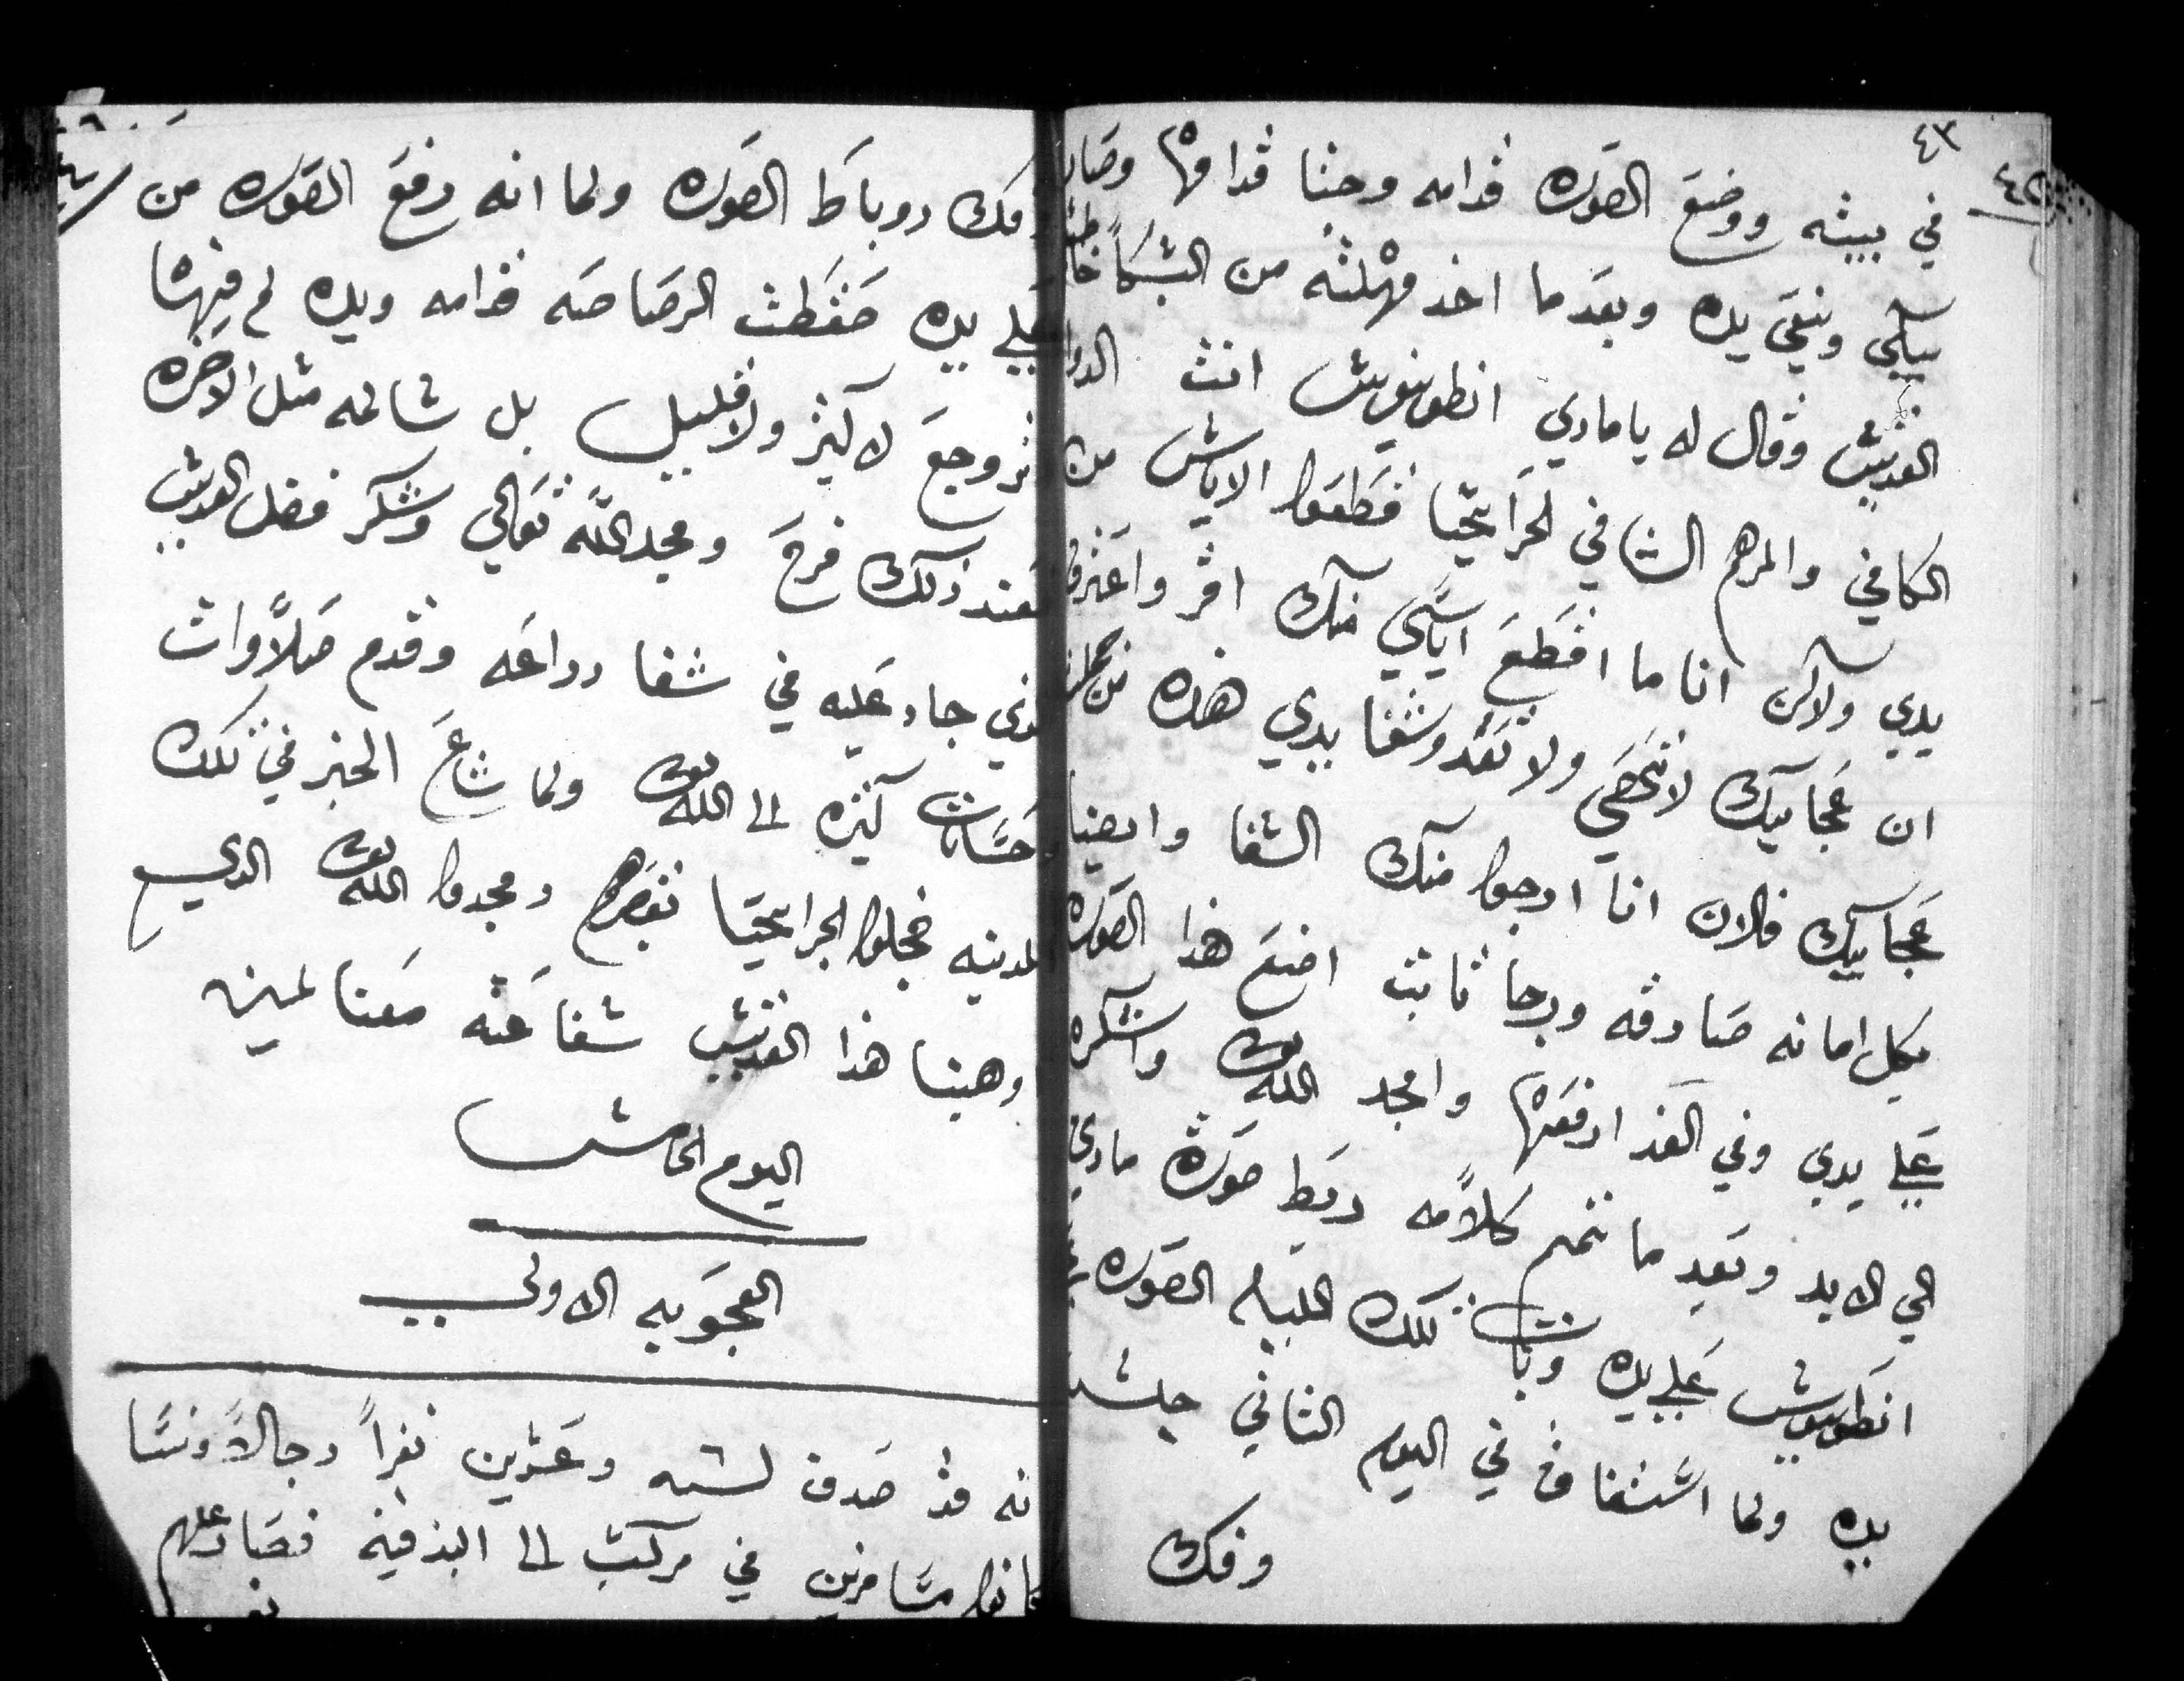 ٤٣
في بيته ووضع الصوره قدامه وجتا قدامها وصار
يبكي وينقي يده وبعدما اخد مهلته من البكا خاطب
القديس وقال له يا ماري انطونيوس انت الدوا
الكافي والمرهم الشافي الجرايحيا قطعوا الاياس من
يدي ولاكن انا ما اقطع اياسي منك اقر واعترف
ان عجايبك لا تنحصي ولا تعد وشفا يدي هذه من جملة
عجايبك فالان انا ارجوا منك الشفا وايضا
بكل امانه صادقه ورجا ثابت اضع هذا الصوره
علي يدي وفي الغد ارفعها وامجد الله واشكره
الي الابد وبعد ما تمم كلامه ربط صورة ماري
انطونيوس علي يده وبات تلك الليله الصوره
يده ولما استفاق في اليوم الثاني جلس
وفك
وفك روباط الصوره ولما انه رفع الصوره من
علي يده صقطت الرصاصه قدامه ويده لم فيها
اثر وجع لا كثير ولا قليل بل سالمه مثل الاخره
فعند ذلك فرح ومجد الله تعالي وشكر فضل القديس
الذي جاد عليه في شفا دراعه وقدم صلاوات
وحسنات كثيره الى الله ولما شاع الخبر في تلك
المدينه خجلوا الجرايحيا بقصرهم ومجدوا الله الذي
وهبنا هذا القديس شفاعته معنا امين
اليوم الخامس
العجوبه الاولى
انه قد صدف لسته وعشرين نفراً رجالاً ونسا
كانوا مسافرين في مركب الى البندقيه فصار عليهم